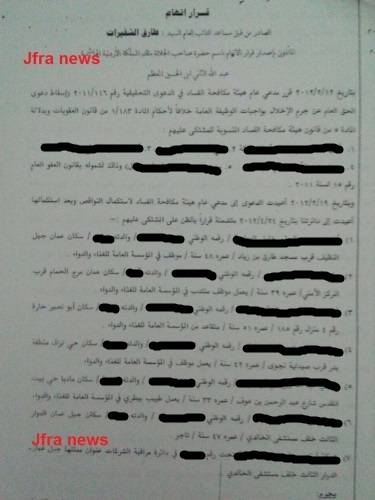 Jfra news
قرار اتهام
الصادر عن قبل مساعد النائب العام السيد : طارق الشقيرات
المأذون بإصدار قرار الاتهام باسم حضرة صاحب الجلالة ملك المملكة الأردنية الهاشمية
عبد الله الثاني ابن الحسين المعظم
بتاريخ ٢٠١٢/٢/١٢ قرر مدعي عام هيئة مكافحة الفساد في الدعوى التحقيقية رقم ٢٠١١/١٤٦ إسقاط دعوى
الحق العام عن جرم الإخلال بواجبات الوظيفة العامة خلافاً لأحكام المادة ١/١٨٣ من قانون العقوبات وبدلالة
المادة ٥ من قانون هيئة مكافحة الفساد المنسوبة للمشتكى عليهم :
١. ٢. ٣.
٤. ٥. وذلك لشموله بقانون العفو العام
رقم ١٥ لسنة ٢٠١١ .
وبتاريخ ٢٠١٢/٢/١٩ أعيدت الدعوى إلى مدعي عام هيئة مكافحة الفساد لاستكمال النواقص وبعد استكمالها
أعيدت إلى دائرتنا بتاريخ ٢٠١٢/٤/٢٤ متضمنة قراراً بالظن على المشتكى عليهم :-
١) / رقمه الوطني / والدته / سكان عمان جبل
النظيف قرب مسجد طارق بن زياد / عمره ٤٨ سنة / موظف في المؤسسة العامة للغذاء والدواء .
٢) / رقمه الوطني / والدته / سكان عمان مرج الحمام قرب
المركز الأمني / عمره ٣٩ سنة / يعمل موظف منتدب في المؤسسة العامة للغذاء والدواء .
٣) / رقمه الوطني / والدته / سكان أبو نصير حارة
رقم ٤ منزل رقم ١٨٥ / عمره ٥١ سنة / متقاعد من المؤسسة العامة للغذاء والدواء .
٤) / رقمه الوطني / والدته / سكان حي نزال منطقة
بدر قرب صيدلية نجوى / عمره ٤٢ سنة / يعمل موظف في المؤسسة العامة للغذاء والدواء .
٥) / رقمه الوطني / والدته / سكان مادبا حي بيت
المقدس شارع عبد الرحمن بن عوف / عمره ٣٣ سنة / يعمل طبيب بيطري في المؤسسة العامة للغذاء والدواء .
٦) / رقمه الوطني / والدته / سكان جبل عمان الدوار
الثالث خلف مستشفى الخالدي / عمره ٤٧ سنة / تاجر .
٧) رقم في دائرة مراقبة الشركات عنوان ممثلها جبل عمان
الدوار الثالث خلف مستشفى الخالدي
Jfra news
بجرم: